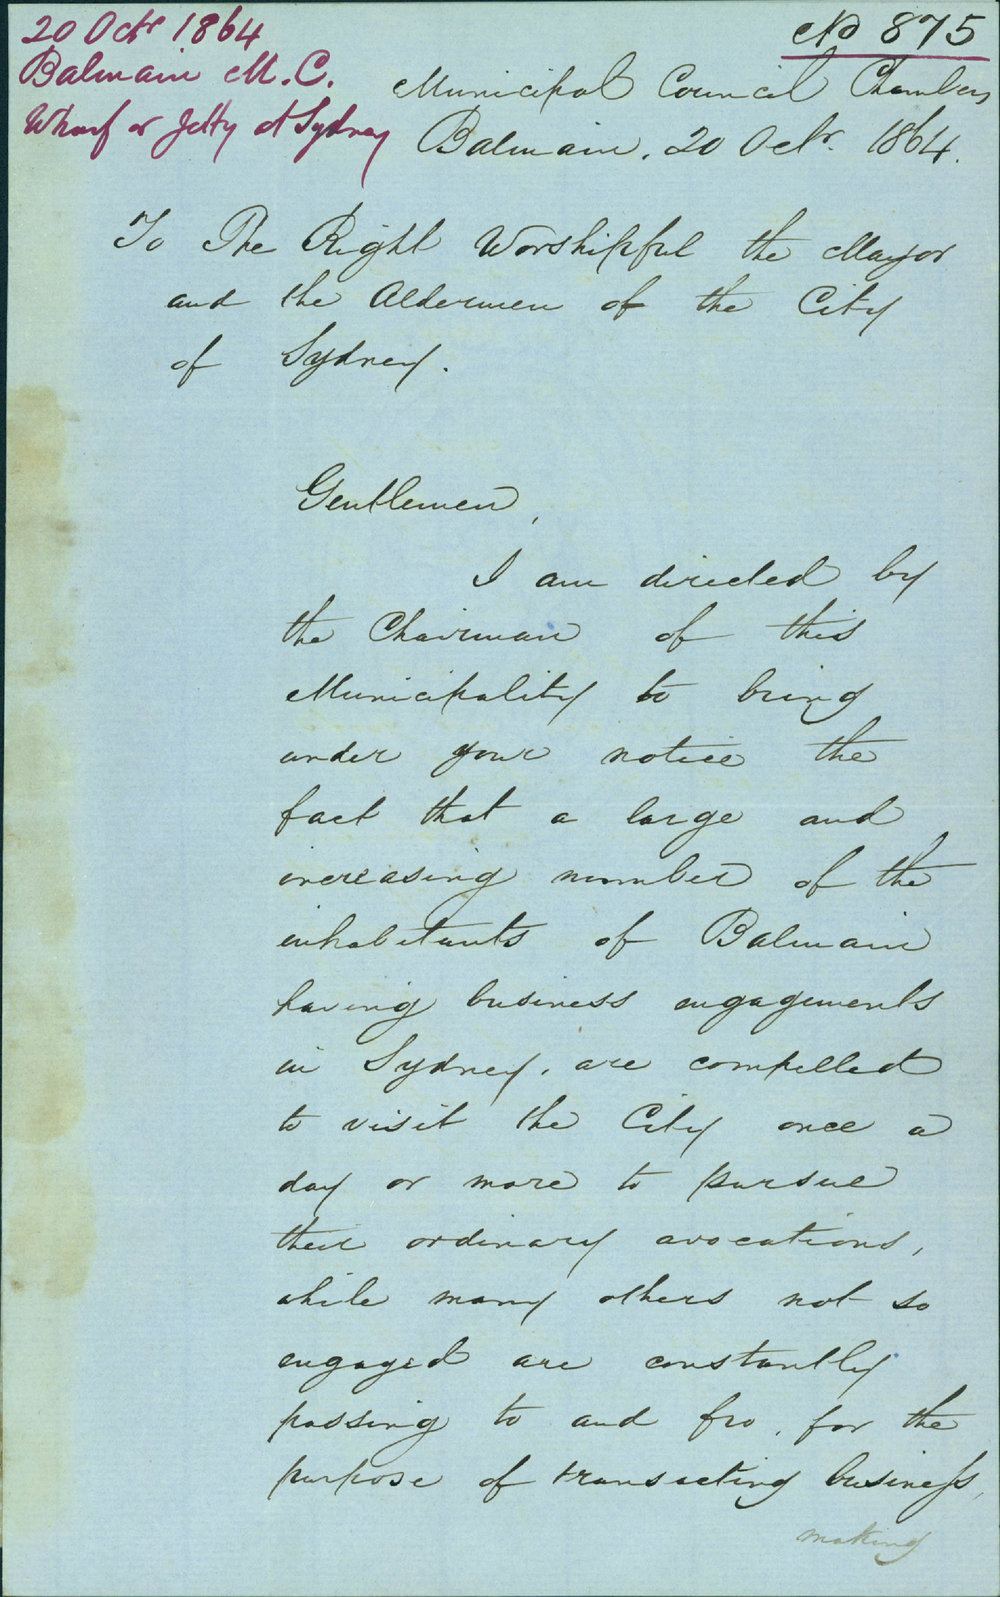 20 Octr 1864
Balmain M.C.
Wharf or Jetty at Sydney
No 875
Municipal Council Chambers
Balmain. 20 Octr. 1864.
To The Right Worshipful the Mayor
and the Aldermen of the City
of Sydney.
Gentlemen,
I am directed by
the Chairman of this
Municipality to bring
under your notice the
fact that a large and
increasing number of the
inhabitants of Balmain
having business engagements
in Sydney, are compelled
to visit the City once a
day or more to pursue
their ordinary avocations,
while many others not so
engaged are constantly
passing to and fro, for the
purpose of transacting business,
making